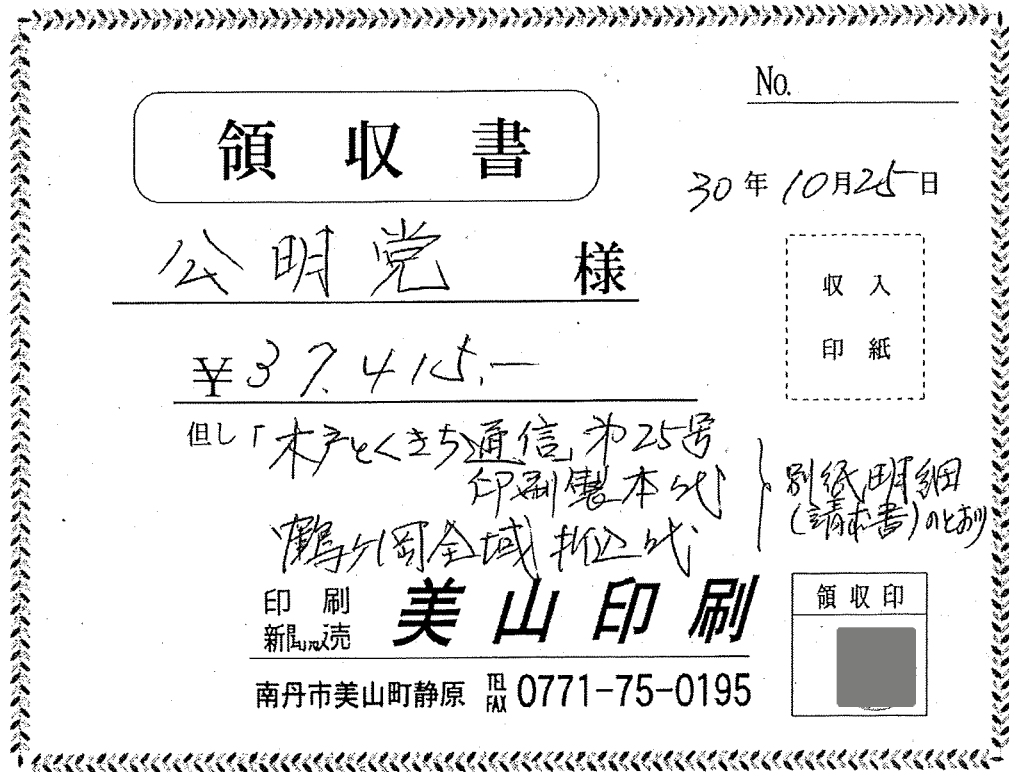 No.
領収書
30年10月25日
公明党 様
収入
印紙
¥37,415.-
但し「木戸とくきち通信」第25号
印刷製本代
鶴ヶ岡全域折込代
別紙明細
(請求書)のとおり
印刷
新聞販売
美山印刷
領収印
南丹市美山町静原 TEL FAX 0771-75-0195